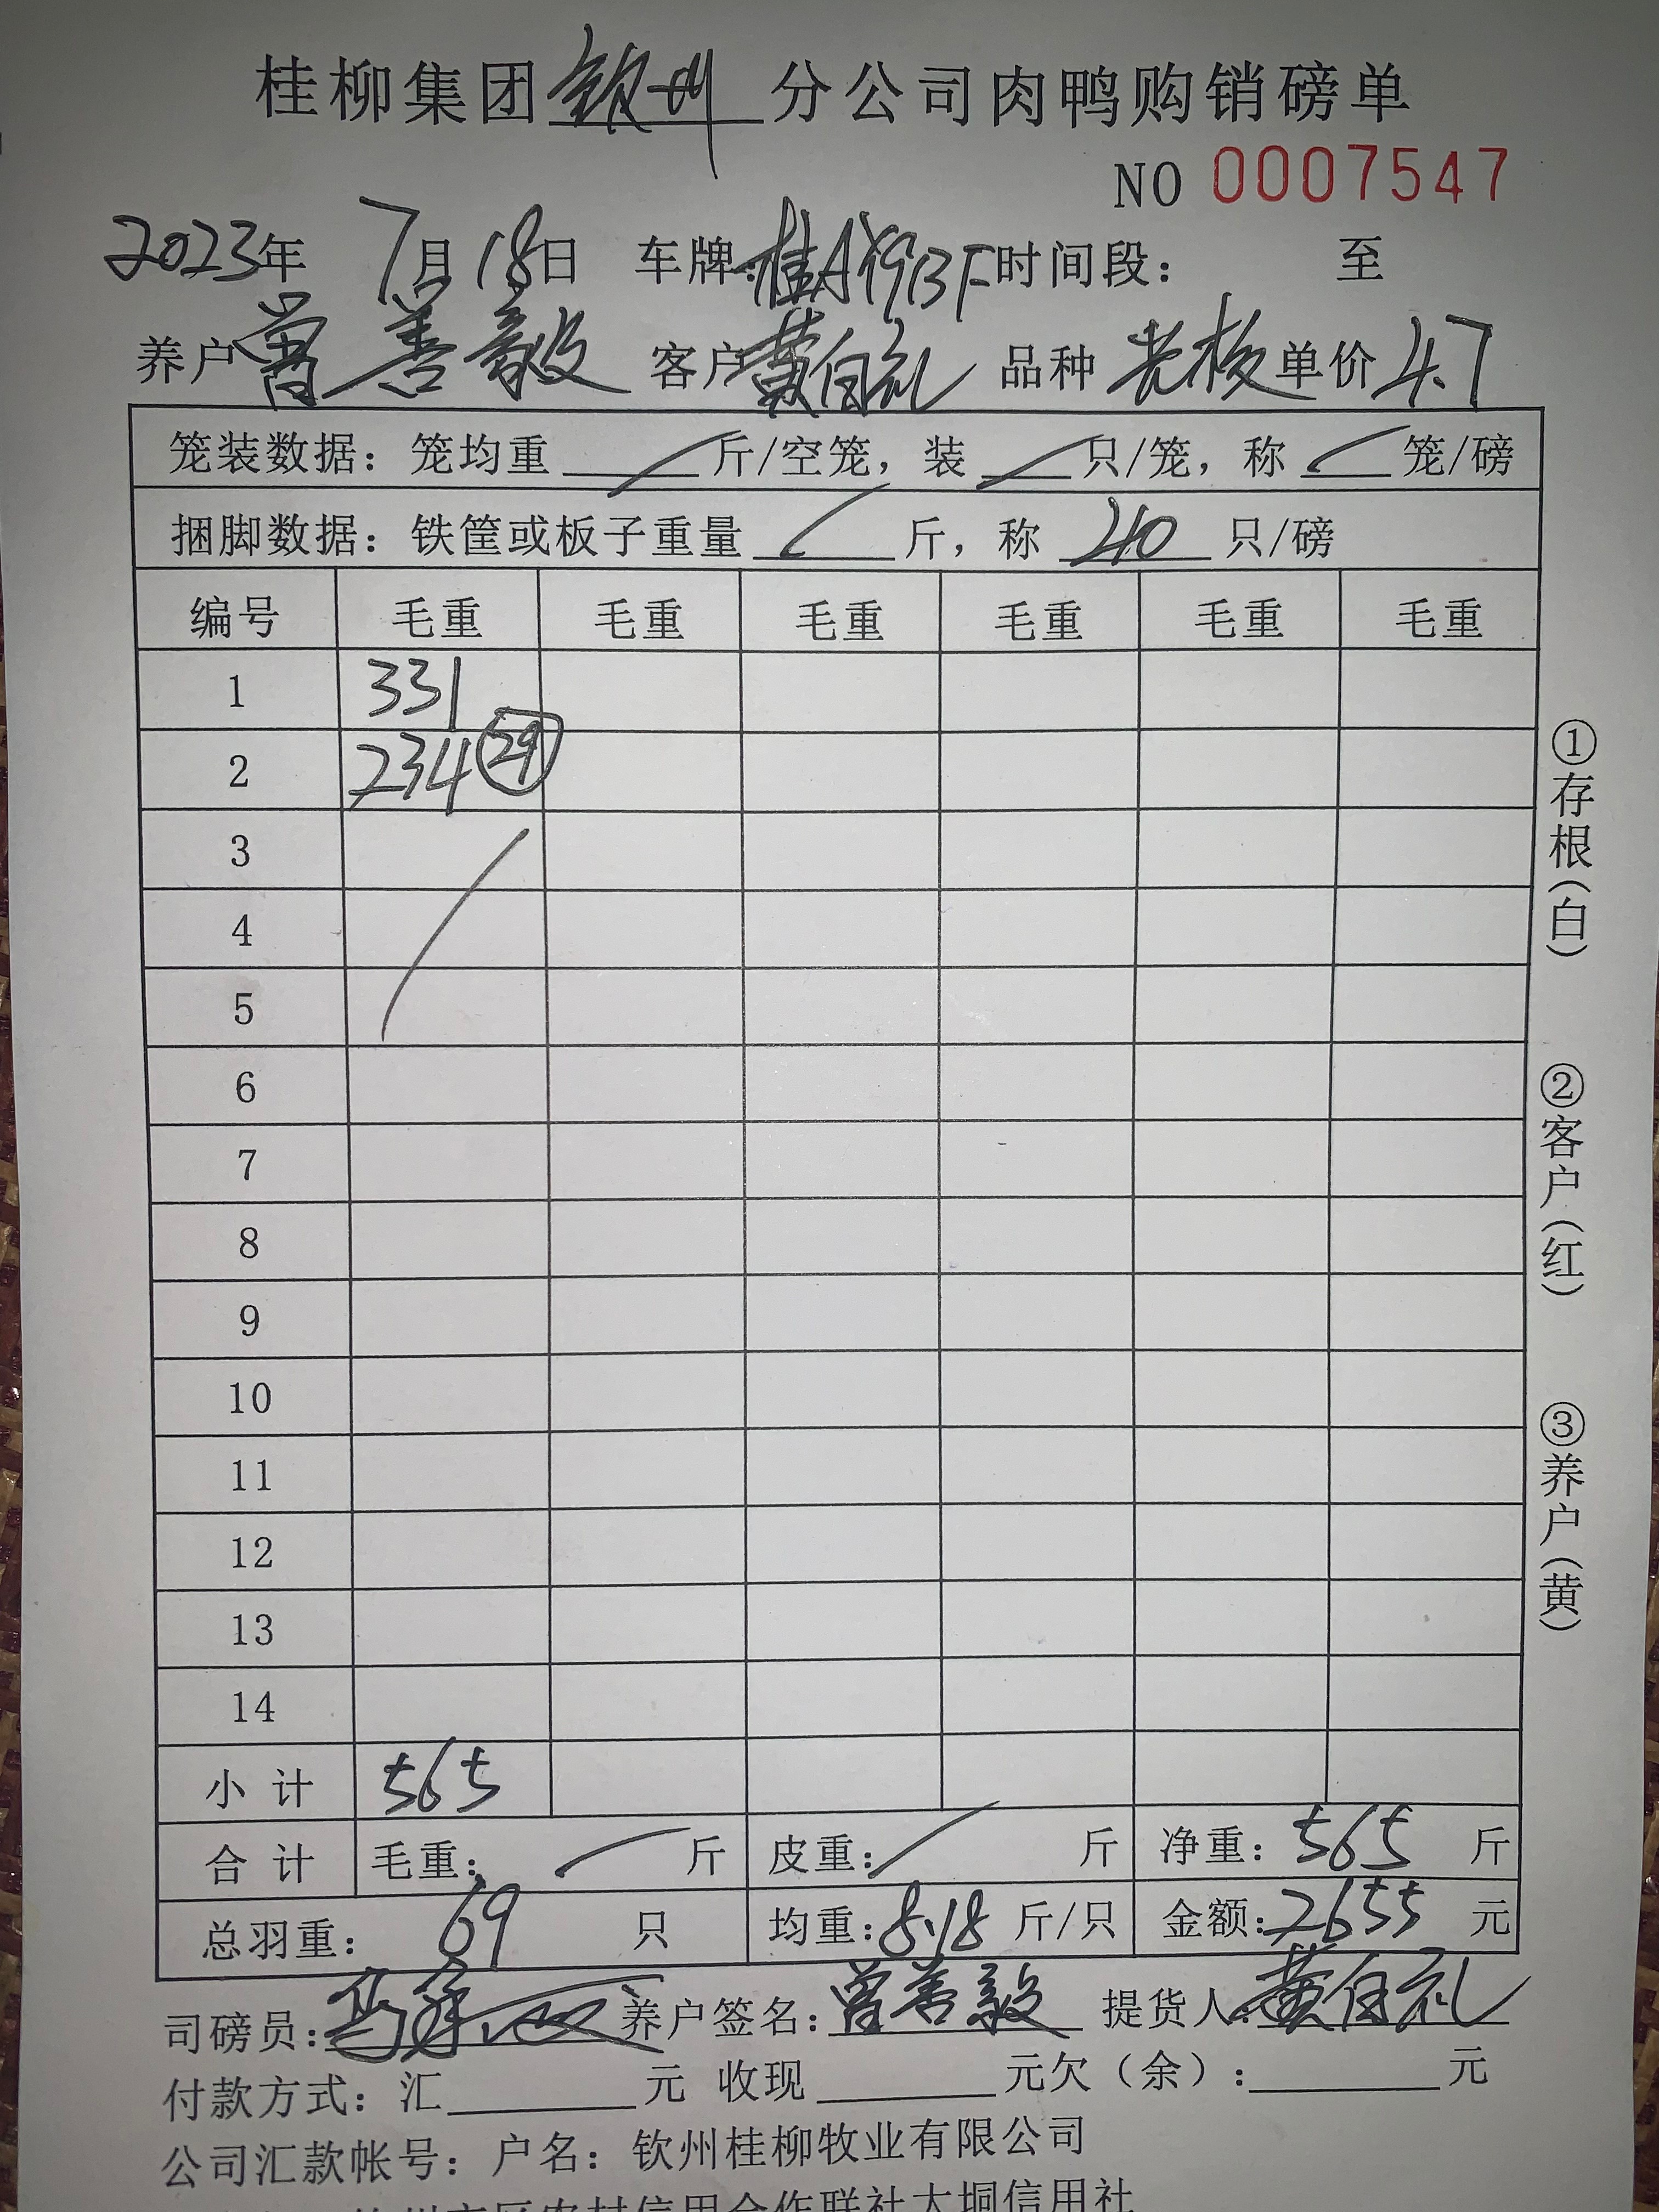 桂柳集团钦州分公司肉鸭购销磅单
NO 0007547
2023年 7月 18日 车牌:桂AY913F时间段: 至
养户曾善毅 客户黄自礼 品种 单价4.7
笼装数据:笼均重 斤/空笼,装 只/笼,称 笼/磅
捆脚数据:铁筐或板子重量 斤,称 40 只/磅
编号 毛重 毛重 毛重 毛重 毛重 毛重
1 331
2 234 29
3
4
5
6
7
8
9
10
11
12
13
14
小计 565
合计 毛重: 斤 皮重: 斤 净重:565 斤
总羽重: 69 只 均重:8.18 斤/只 金额:2655 元
司磅员: 养户签名:曾善毅 提货人:黄自礼
付款方式:汇 元 收现 元欠(余): 元
公司汇款帐号:户名:钦州桂柳牧业有限公司
农村信用合作联社大垌信用社
①存根(白)
②客户(红)
③养户(黄)